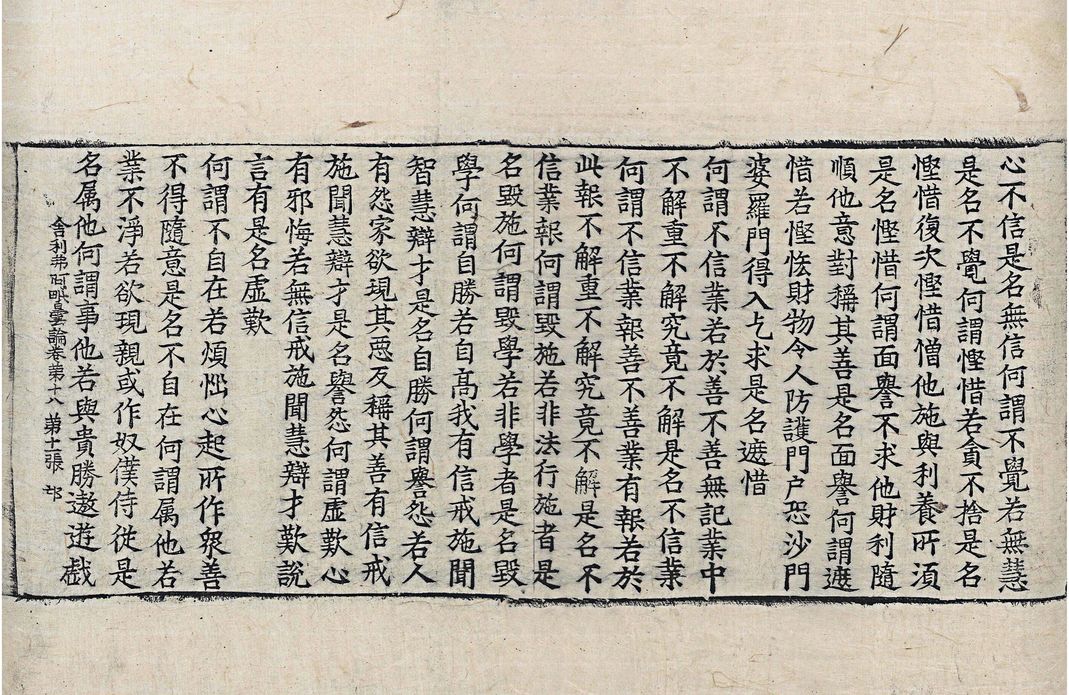 心不信是名無信何謂不覺若無慧
是名不覺何謂慳惜若貪不捨是名
慳惜復次慳惜僧他施與利養所須
是名慳惜何謂面譽不求他財利隨
順他意對稱其善是名面譽何謂遮
惜若慳恡財物令人防護門户恐沙門
婆羅門得入乞求是名遮惜
何謂不信業若於善不善無記業中
不解重不解究竟不解是名不信業
何謂不信業報善不善業有報若於
此報不解重不解究竟不解是名不
信業報何謂毀施若非法行施者是
名毀施何謂毀學若非學者是名毀
學何謂自勝若自高我有信戒施聞
智慧辯才是名自勝何謂譽怨若人
有怨家欲現其惡反稱其善有信戒
施聞慧辯才是名譽怨何謂虛歎心
有邪悔若無信戒施聞慧辯才歎說
言有是名虛歎
何謂不自在若煩惱心起所作眾善
不得隨意是名不自在何謂属他若
業不淨若欲現親或作奴僕侍從是
名属他何謂事他若與貴勝遨遊戲
舍利弗阿毗曇論卷第十八 第十一張